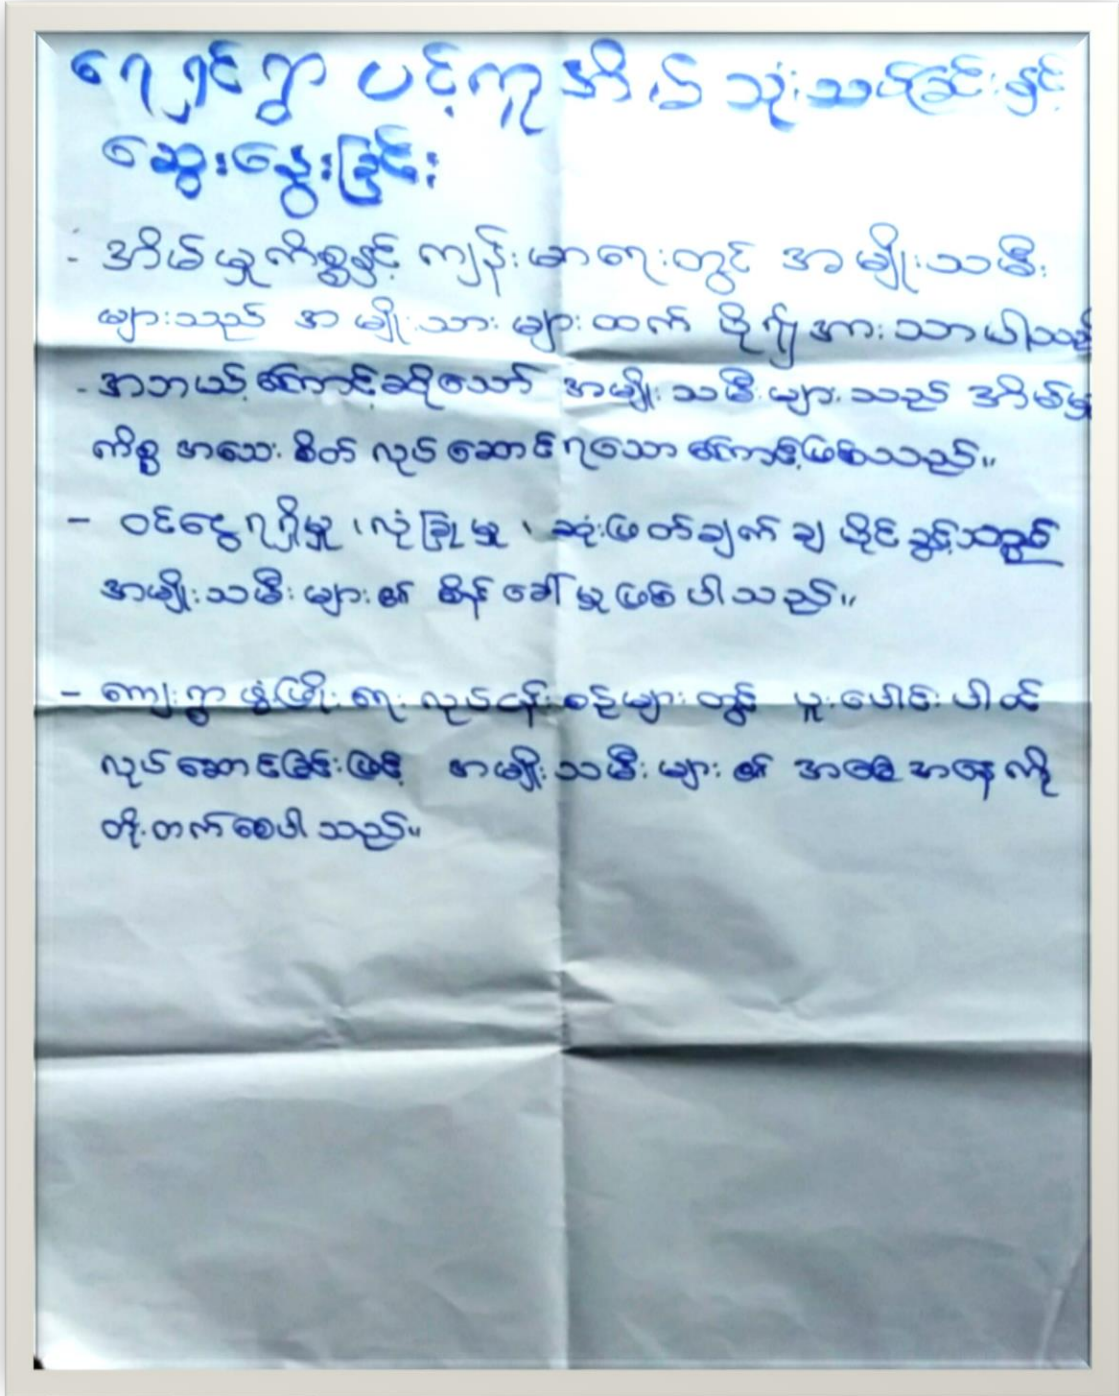 ရေရှင်ရွာ ပင့်ကူအိမ် သုံးသပ်ခြင်းနှင့်
ဆွေးနွေးခြင်း
- အိမ်မှုကိစ္စနှင့် ကျန်းမာရေးတွင် အမျိုးသမီး
များသည် အမျိုးသားများထက် ပို၍ အားသာပါသည်
- အဘယ့်ကြောင့်ဆိုသော် အမျိုးသမီးများသည် အိမ်မှု
ကိစ္စ အသေးစိတ် လုပ်ဆောင်ရသောကြောင့်ဖြစ်သည်။
- ဝင်ငွေရရှိမှု ၊ လုံခြုံမှု ၊ ဆုံးဖြတ်ချက်ချပိုင်ခွင့်သည်
အမျိုးသမီးများ၏ စိန်ခေါ်မှုဖြစ်ပါသည်။
- ကျေးရွာဖွံ့ဖြိုးရေး လုပ်ငန်းစဉ်များတွင် ပူးပေါင်းပါဝင်
လုပ်ဆောင်ခြင်းဖြင့် အမျိုးသမီးများ၏ အခြေအနေကို
တိုးတက်စေပါသည်။